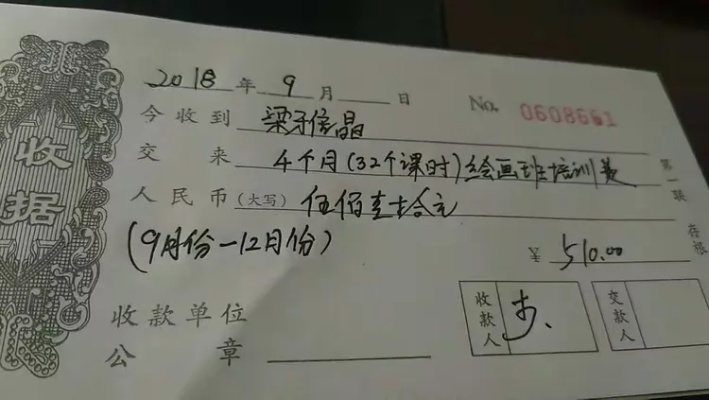 收据
2018年9月 日
No. 0608661
今收到 梁子信晶
交来 4个月(32个课时)绘画班培训费
人民币(大写) 伍佰壹拾元
(9月份-12月份)
¥ 510.00
收款单位
公章
收款人
交款人
第一联 存根